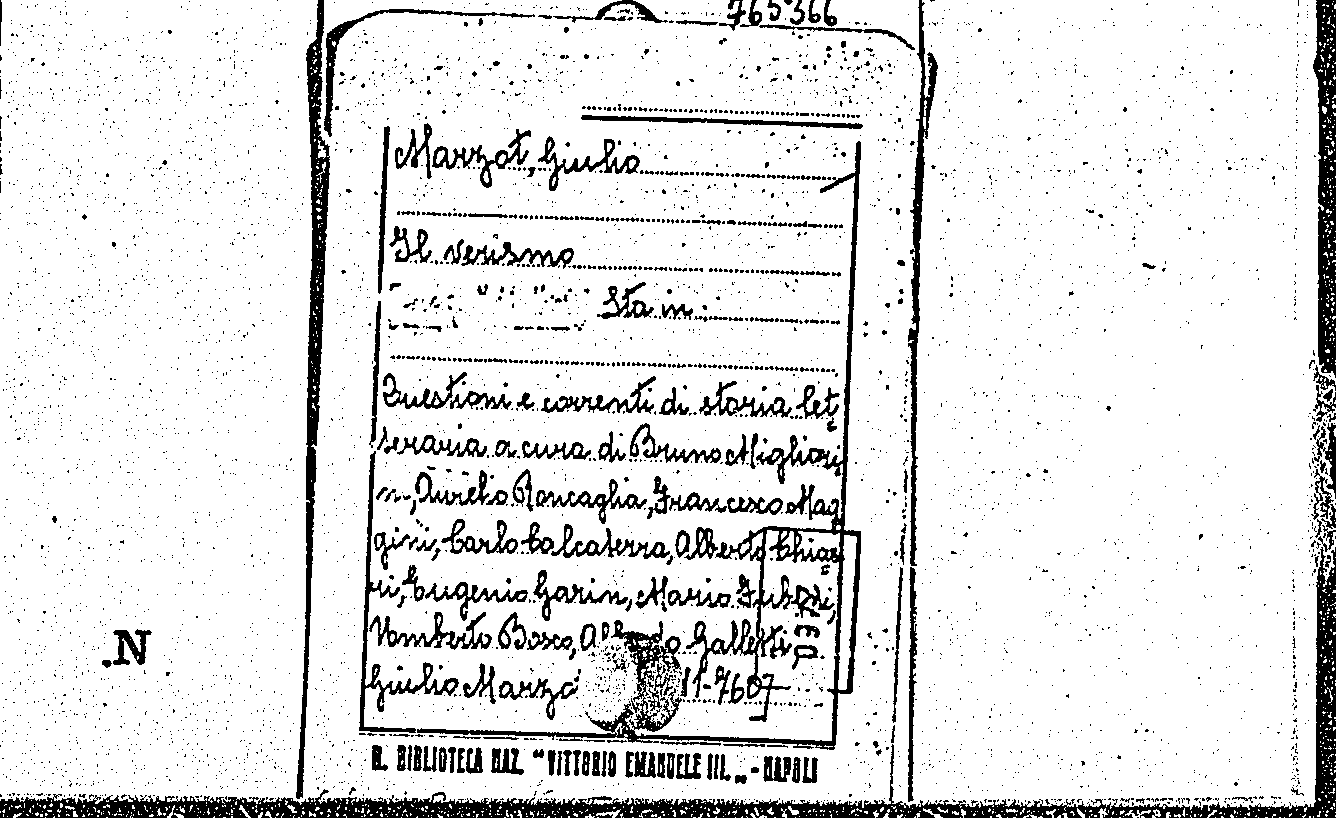 765366
Marzot, Giulio
Il verismo
Sta in:
Questioni e correnti di storia let=
teraria a cura di Bruno Migliori=
ni, Aurelio Roncaglia, Francesco Mag=
gini, Carlo Calcaterra, Alberto Chia=
ri, Eugenio Garin, Mario Fubini,
Umberto Bosco, Alfredo Galletti,
Giulio Marzot
.N
R. BIBLIOTECA NAZ. "VITTORIO EMANUELE III." - NAPOLI